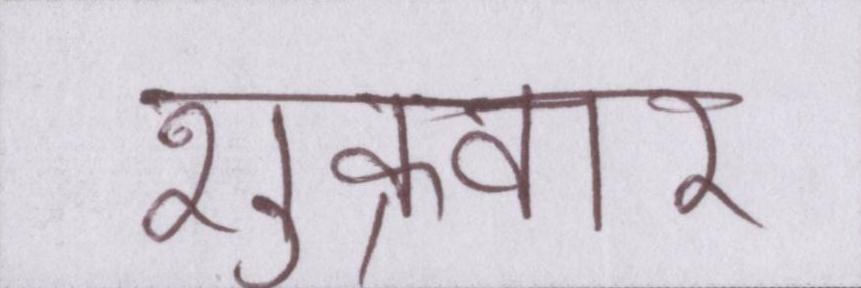 शुक्रवार